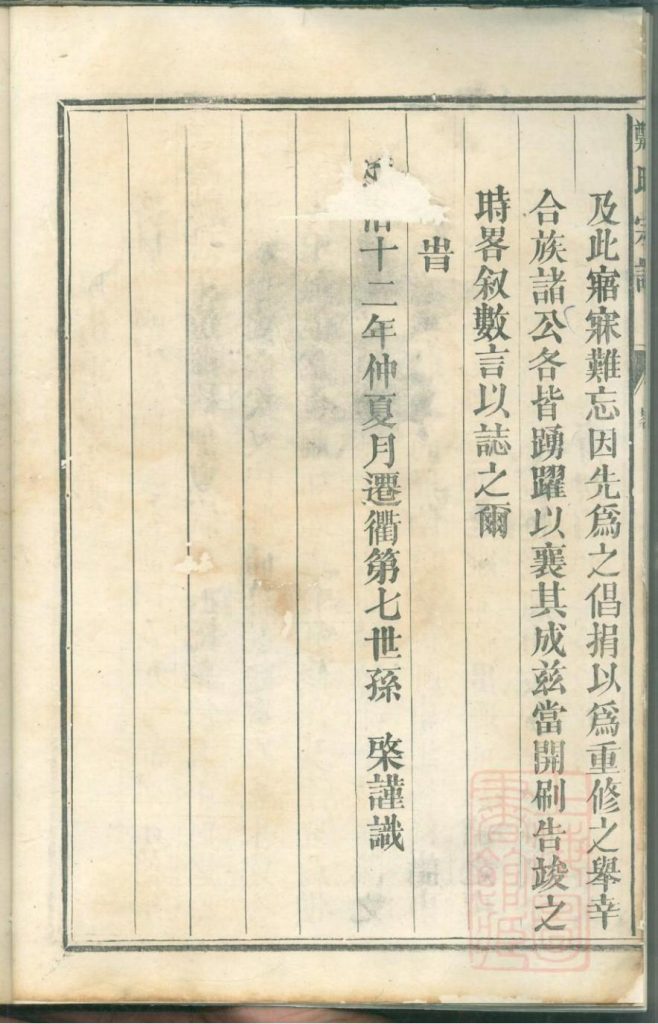 鄭氏宗譜
及此寤寐難忘因先爲之倡捐以爲重修之舉幸
合族諸公各皆踴躍以襄其成兹當開刷告竣之
時畧叙數言以誌之爾
旹
治十二年仲夏月遷衢第七世孫 棨謹識